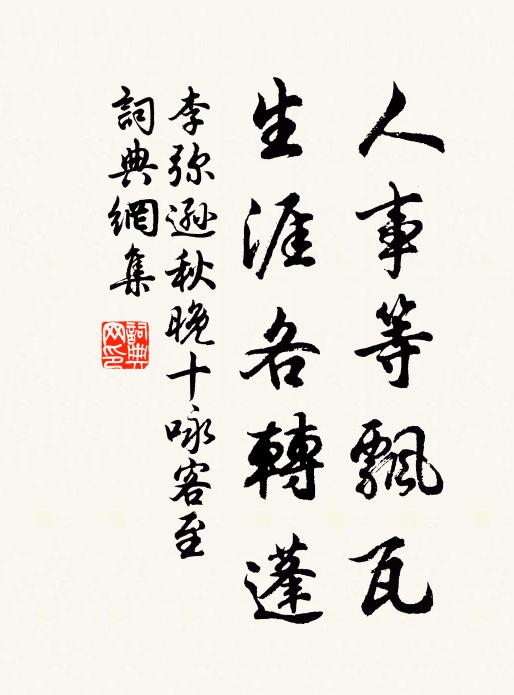 人事等飄瓦
生涯各轉蓬
李弥遜秋晚十咏客至
詞典網集
詞典网印